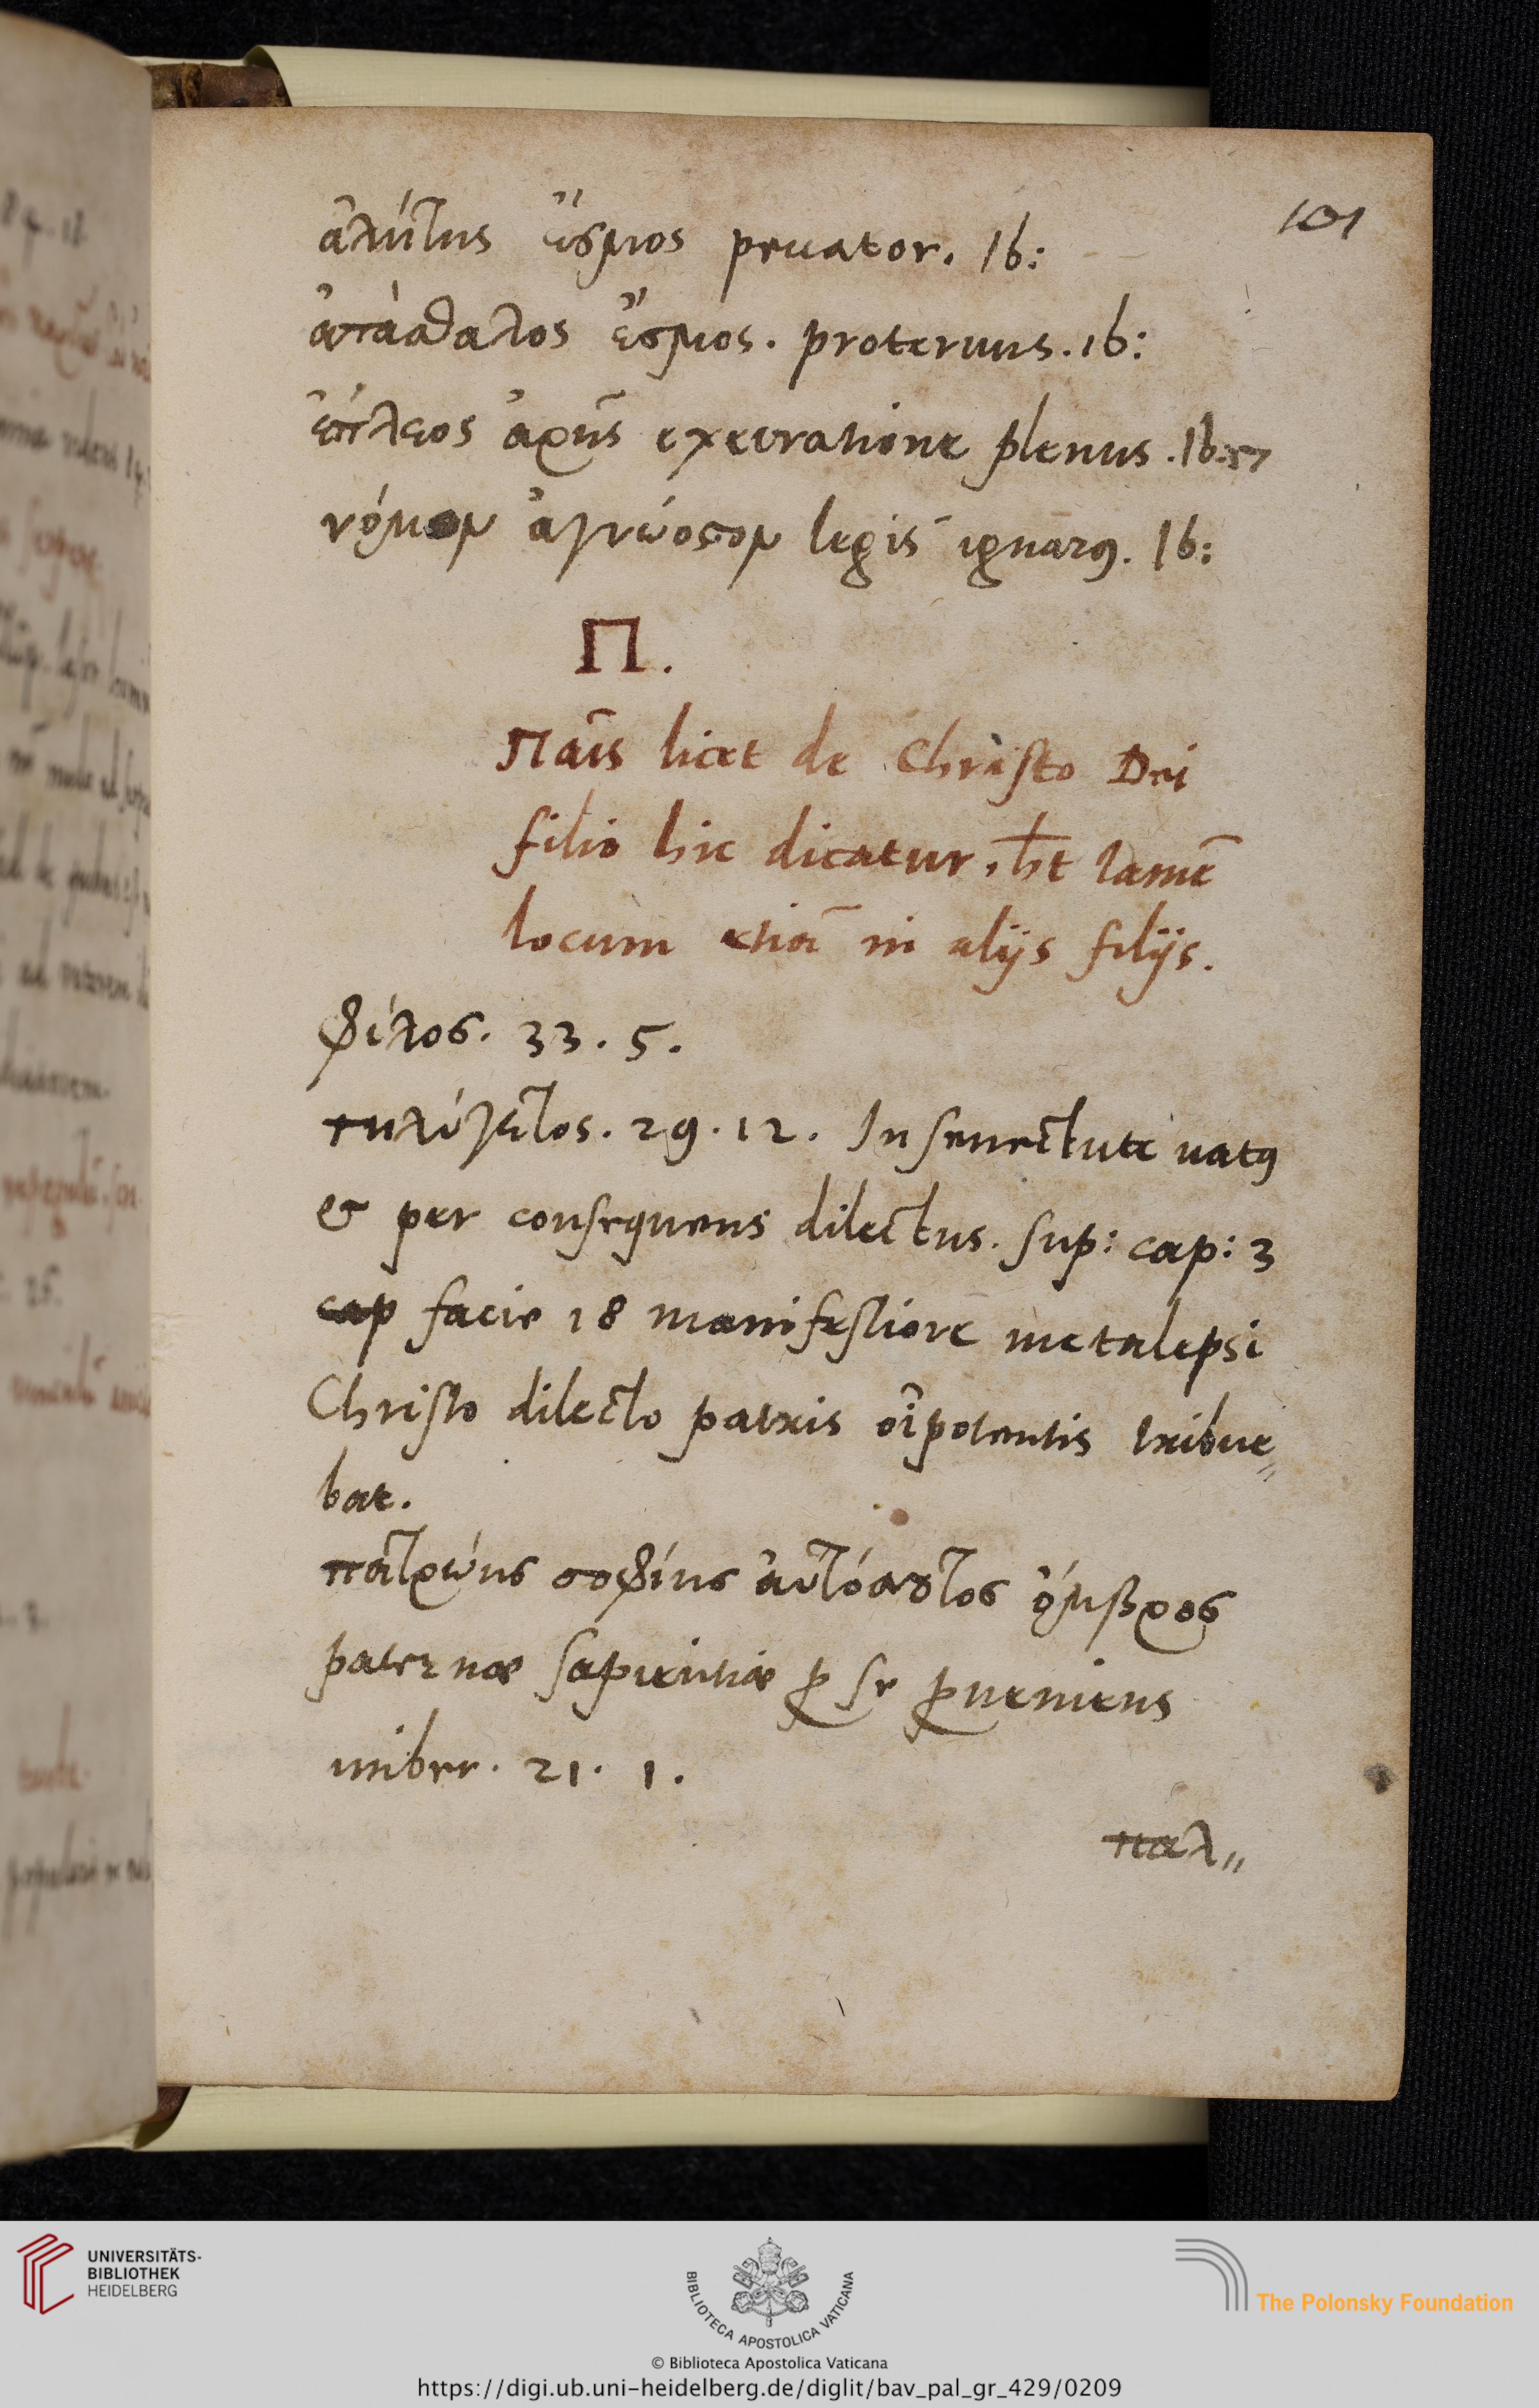 101
ἀλήτης ἑσμὸς peccator. Ib:
ἀτάσθαλος ἑσμὸς. proteruus. ib:
ἔμπλεος ἀρῆς execratione plenus. Ib:
νόμων ἄγνωστον legis ignarꝯ. Ib:
Π.
Παῖς licet de Christo Dei
filio hic dicatur, ht tamē
locum etiā in alijs filijs.
φίλος. 33. 5.
τηλύγετος. 29. 12. In senectute natꝯ
& per consequens dilectus. sup: cap: 3
cap facie 18 manifestiore metalepsi
Christo dilecto patris oīpotentis tribue„
bat.
πατρώης σοφίης αὐτόσσυτος ὄμβρος
paternæ sapientiæ ꝑ se ꝑueniens
imber. 21. 1.
παλ„
UNIVERSITÄTS-
BIBLIOTHEK
HEIDELBERG
BIBLIOTECA APOSTOLICA VATICANA
The Polonsky Foundation
© Biblioteca Apostolica Vaticana
https://digi.ub.uni-heidelberg.de/diglit/bav_pal_gr_429/0209